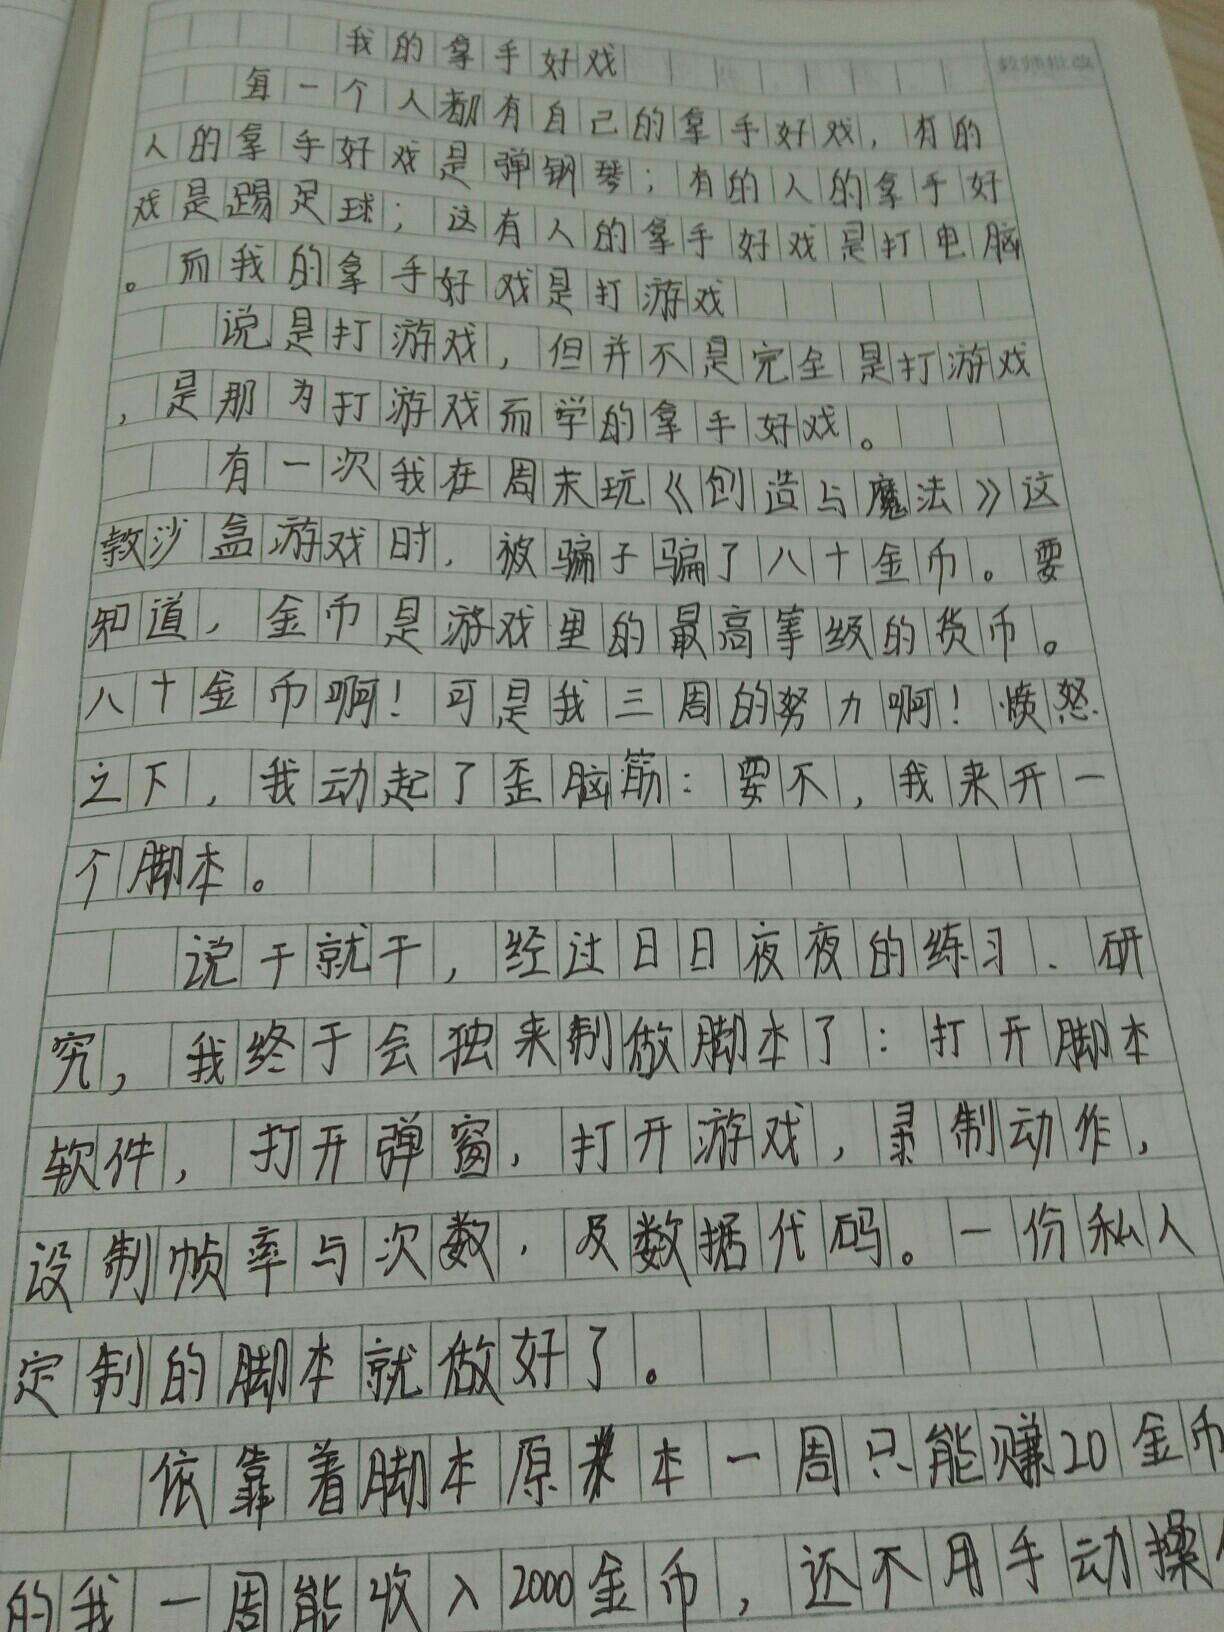 我的拿手好戏
教师批改
每一个人都有自己的拿手好戏，有的
人的拿手好戏是弹钢琴；有的人的拿手好
戏是踢足球；这有人的拿手好戏是打电脑
。而我的拿手好戏是打游戏
说是打游戏，但并不是完全是打游戏
，是那为打游戏而学的拿手好戏。
有一次我在周末玩《创造与魔法》这
款沙盒游戏时，被骗子骗了八十金币。要
知道，金币是游戏里的最高等级的货币。
八十金币啊！可是我三周的努力啊！愤怒
之下，我动起了歪脑筋：要不，我来开一
个脚本。
说干就干，经过日日夜夜的练习、研
究，我终于会独来制做脚本了：打开脚本
软件，打开弹窗，打开游戏，录制动作，
设制帧率与次数，及数据代码。一份私人
定制的脚本就做好了。
依靠着脚本原本一周只能赚20金币
的我一周能收入2000金币，还不用手动操